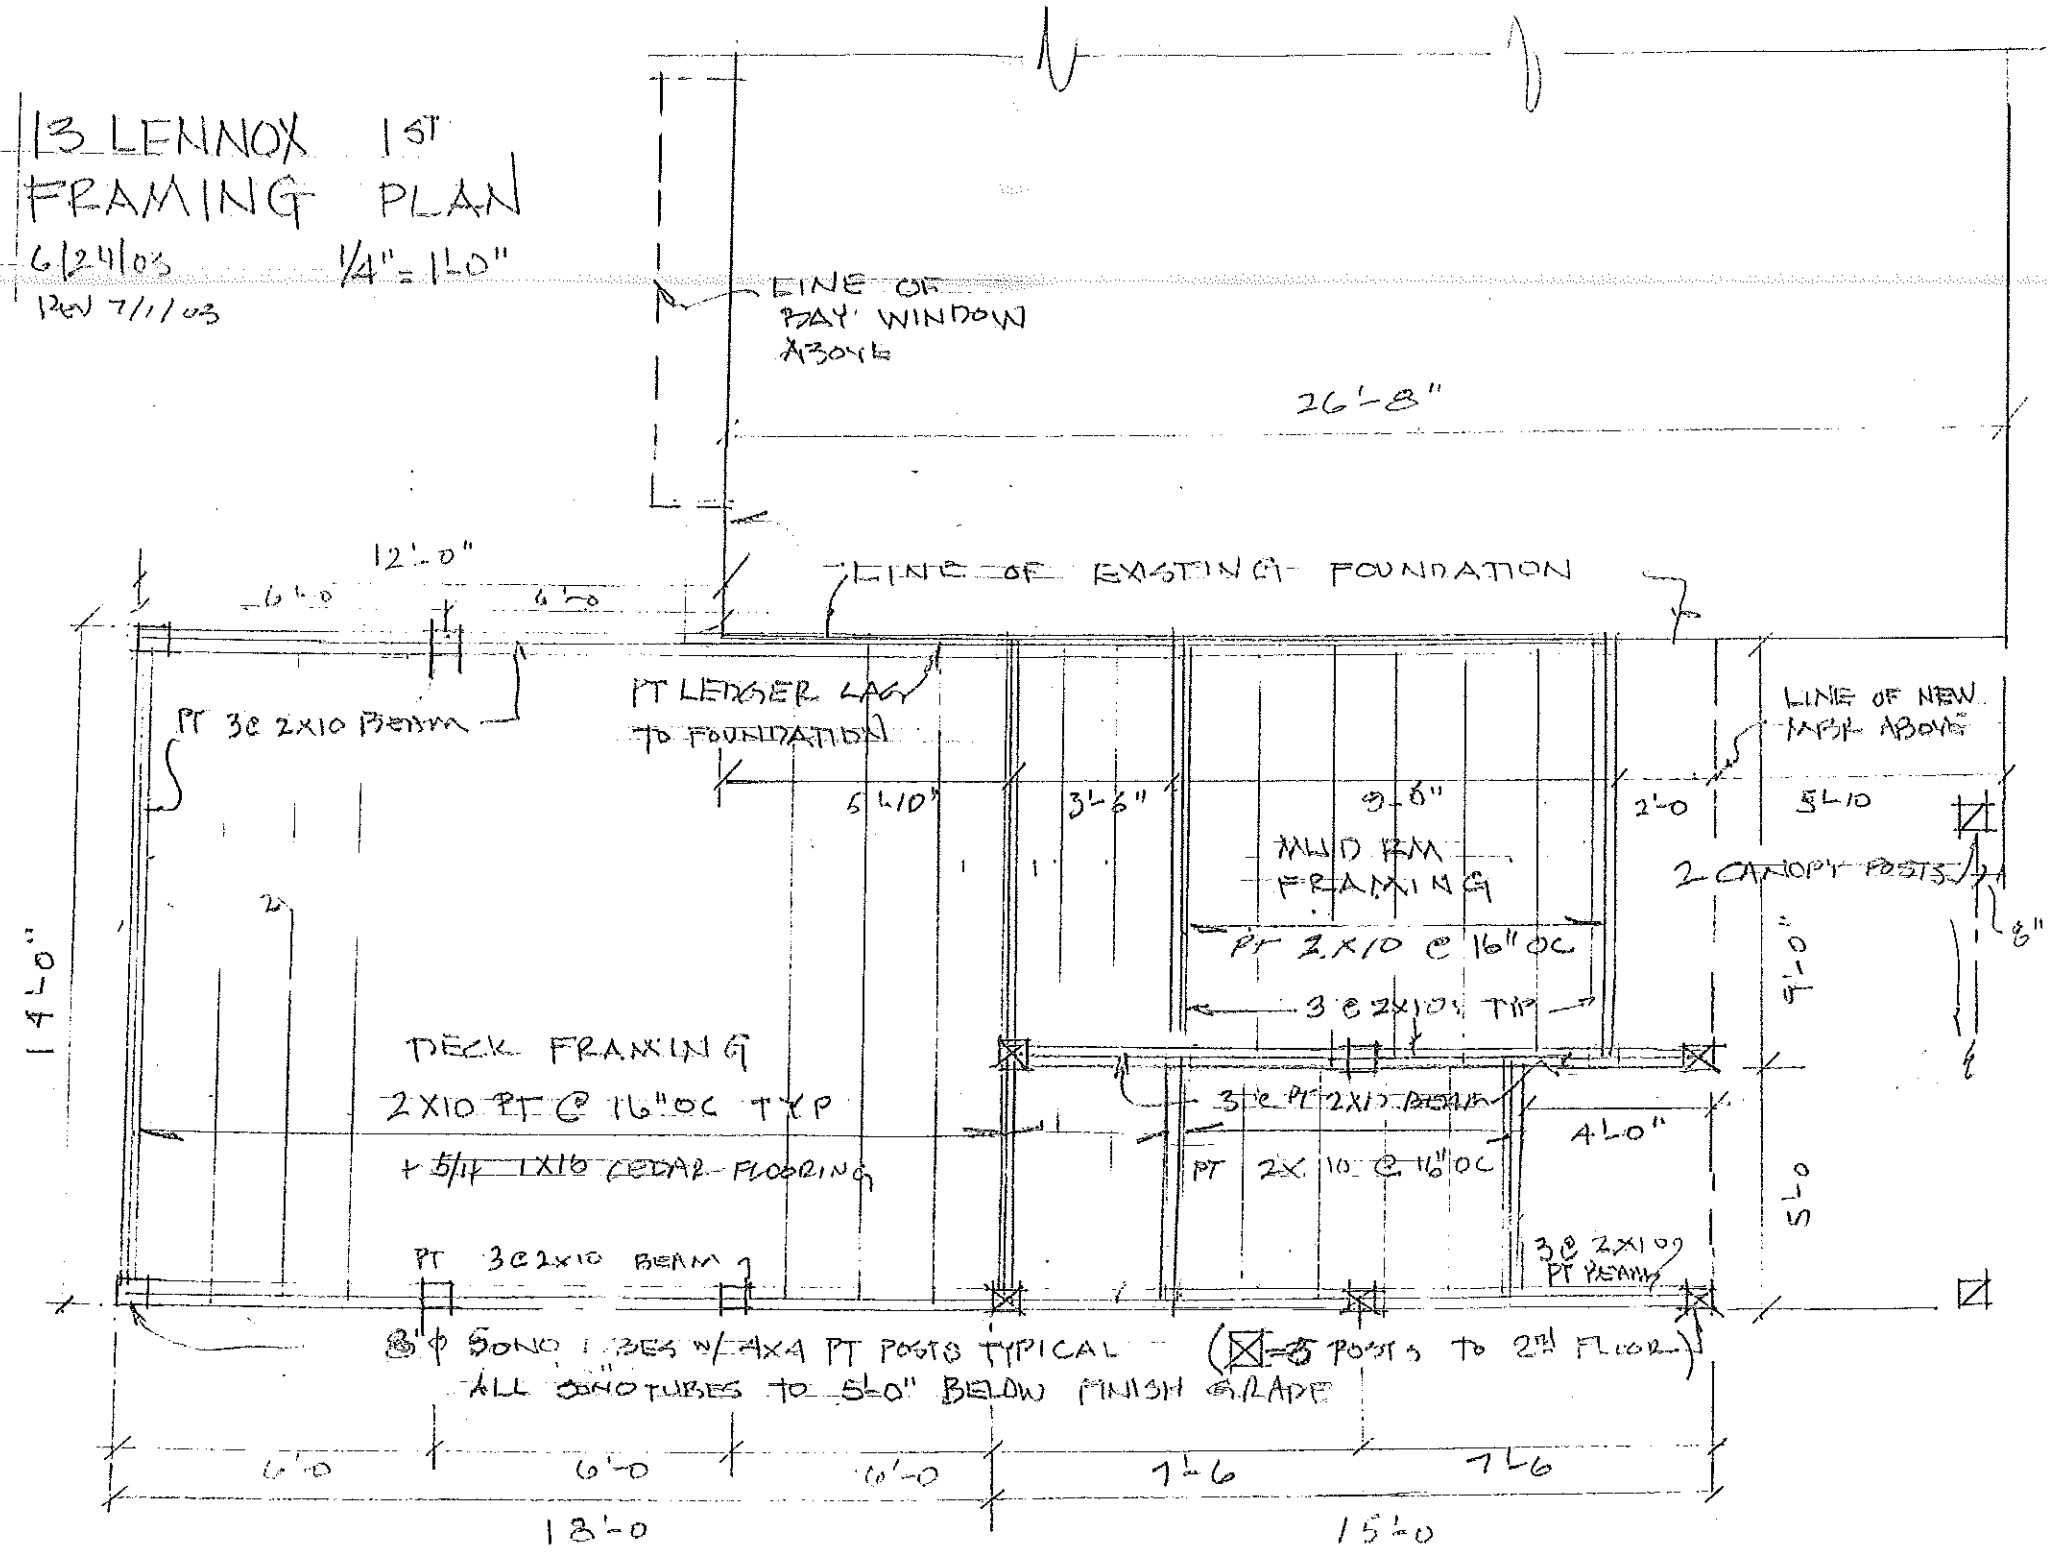 13 LENNOX 1ST
FRAMING PLAN
6/24/03 1/4" = 1'-0"
REV 7/1/03
LINE OF
BAY WINDOW
ABOVE
26'-8"
12'-0"
6'-0 6'-0
LINE OF EXISTING FOUNDATION
PT 3@ 2X10 BEAM
PT LEDGER LAG
TO FOUNDATION
LINE OF NEW
MBR ABOVE
5'-10" 3'-6" 2'-0 5'-10
MUD RM
FRAMING
2 CANOPY POSTS
8"
PT 2X10 @ 16" OC
9'-0"
3@ 2X10s TYP
14'-0"
DECK FRAMING
2X10 PT @ 16" OC TYP
+ 5/4 CEDAR FLOORING
3@ PT 2X10 BEAM
4'-0"
PT 2X10 @ 16" OC
5'-0
PT 3@2X10 BEAM
3@ 2X10s
PT BEAMS
8"φ SONOTUBES W/ 4X4 PT POSTS TYPICAL
(=5 POSTS TO 2ND FLOOR)
ALL SONOTUBES TO 5'-0" BELOW FINISH GRADE
6'-0 6'-0 6'-0 7'-6 7'-6
18'-0 15'-0